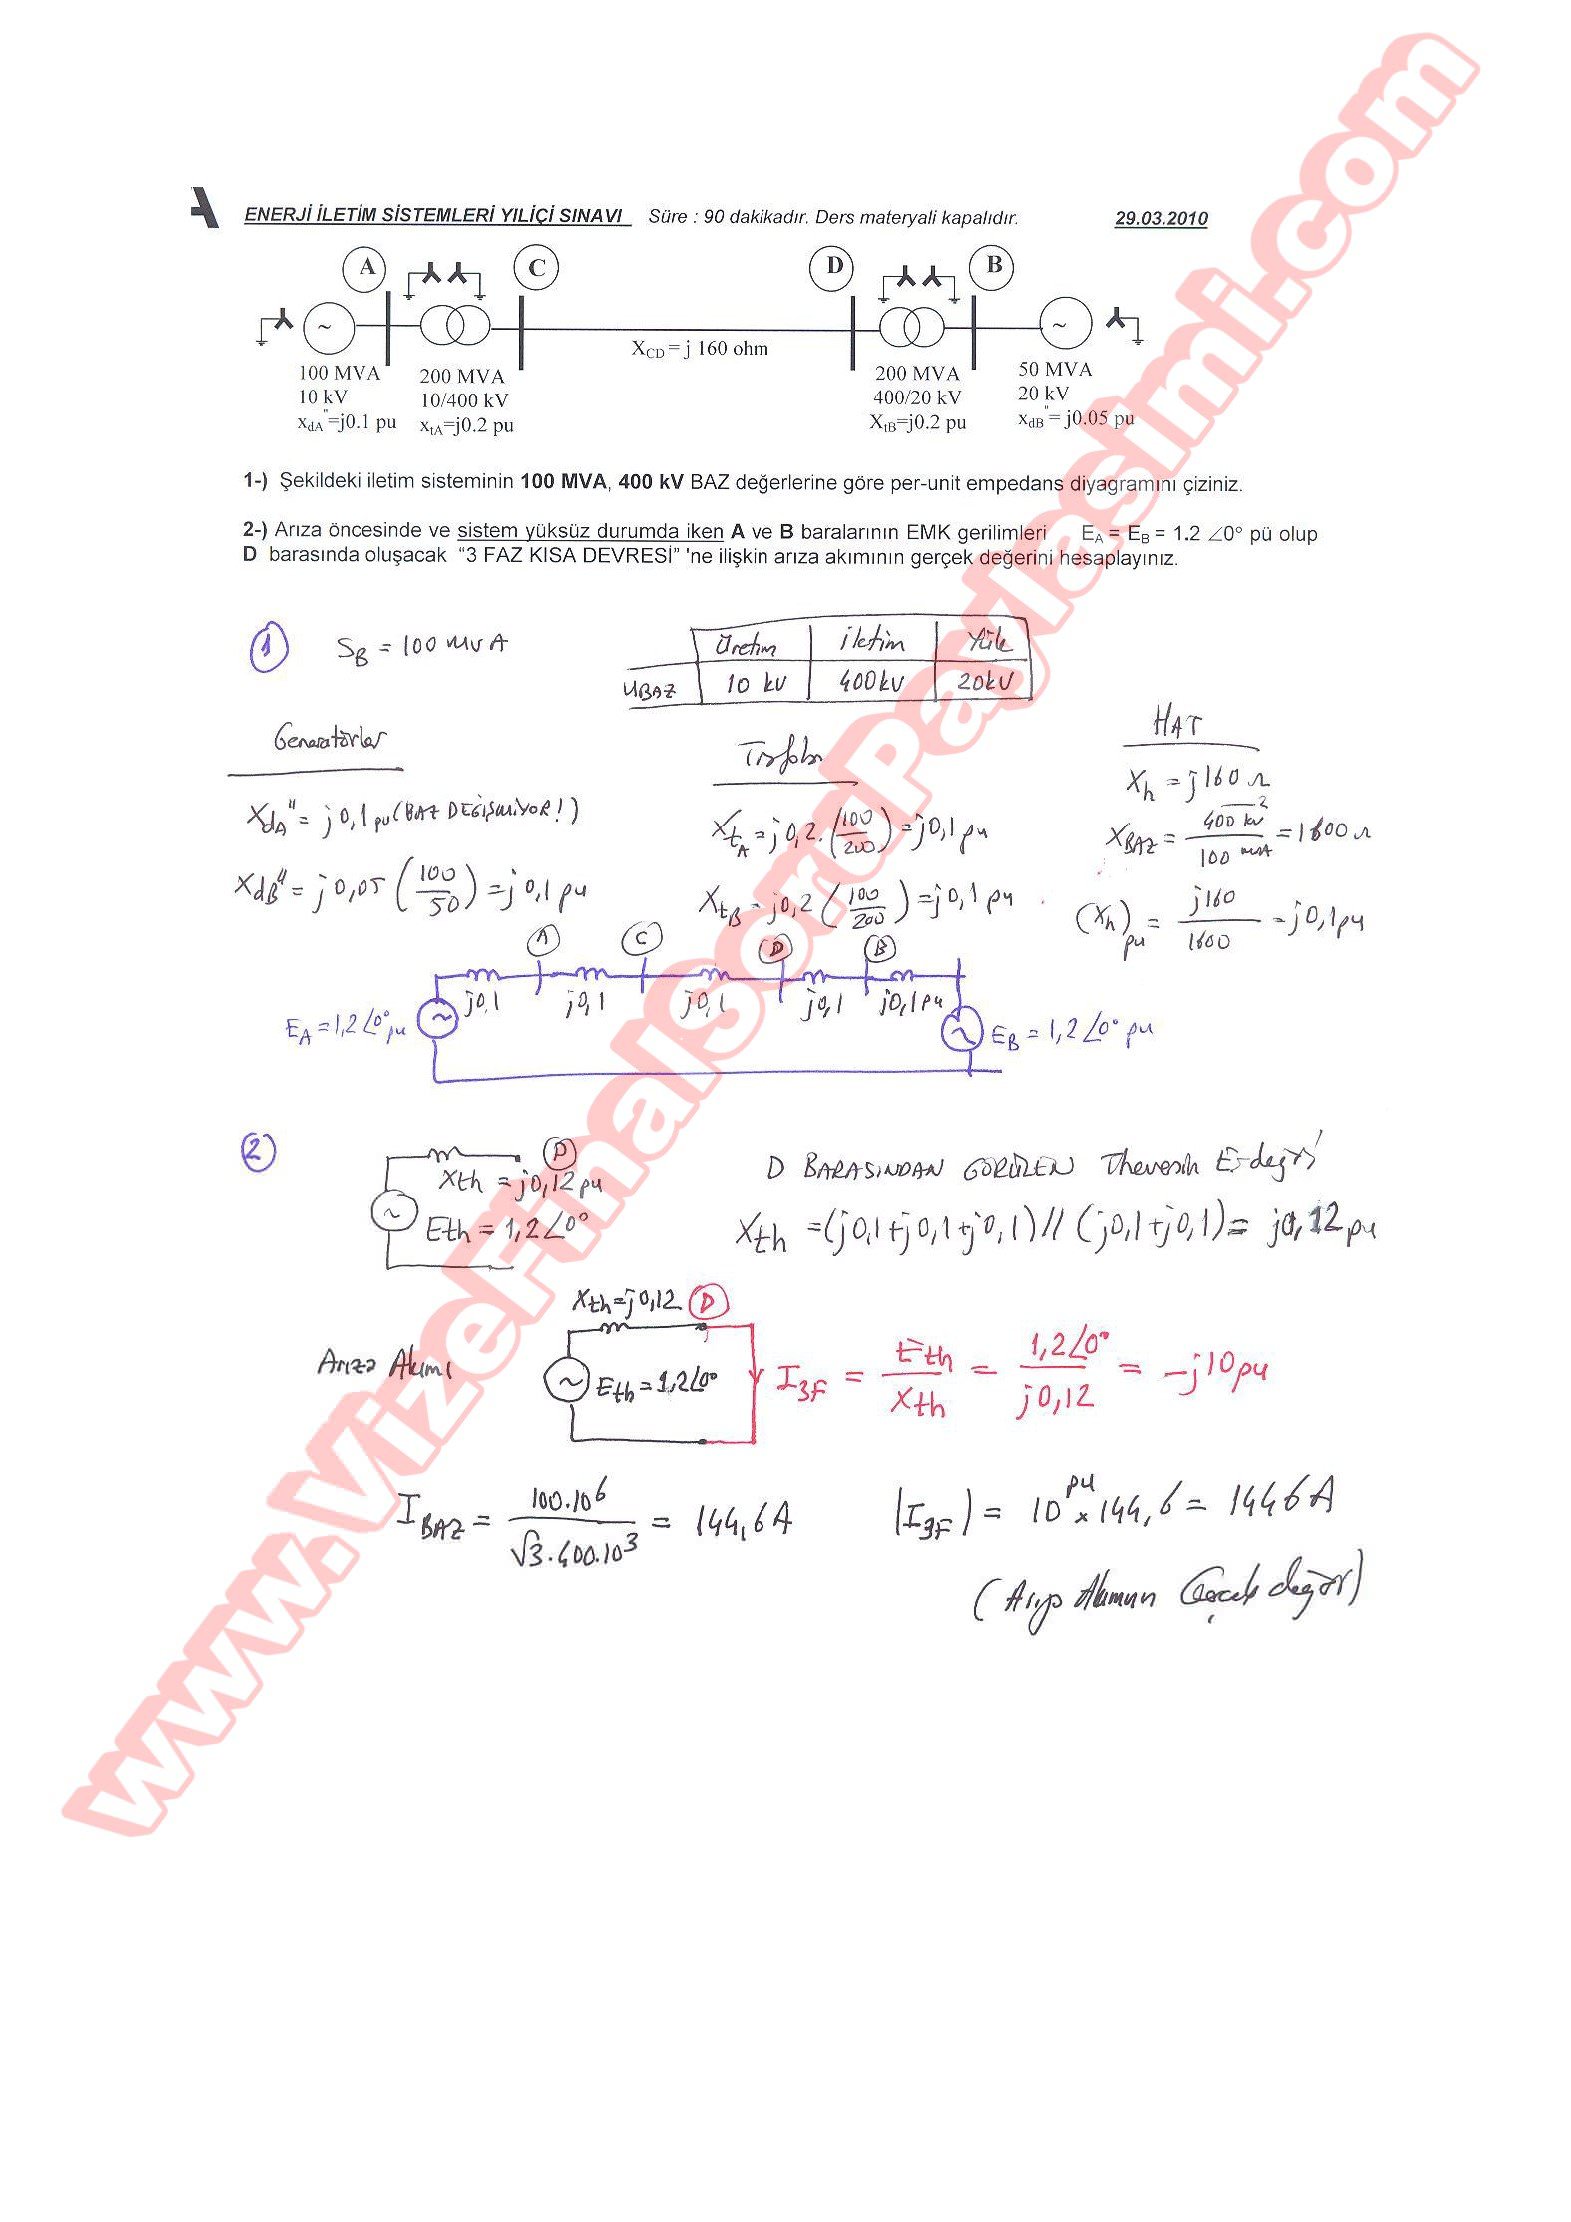 A
ENERJİ İLETİM SİSTEMLERİ YILİÇİ SINAVI Süre : 90 dakikadır. Ders materyali kapalıdır. 29.03.2010
A C D B
~ ~
X_CD = j 160 ohm
100 MVA
10 kV
x_dA"=j0.1 pu
200 MVA
10/400 kV
x_tA=j0.2 pu
200 MVA
400/20 kV
X_tB=j0.2 pu
50 MVA
20 kV
x_dB"= j0.05 pu
1-) Şekildeki iletim sisteminin 100 MVA, 400 kV BAZ değerlerine göre per-unit empedans diyagramını çiziniz.
2-) Arıza öncesinde ve sistem yüksüz durumda iken A ve B baralarının EMK gerilimleri E_A = E_B = 1.2 ∠0° pü olup
D barasında oluşacak "3 FAZ KISA DEVRESİ" 'ne ilişkin arıza akımının gerçek değerini hesaplayınız.
1 S_B = 100 MVA
Üretim İletim Yük
U_BAZ 10 kV 400kV 20kV
Generatörler
X_dA" = j0,1 pu (BAZ DEĞİŞMİYOR!)
X_dB" = j0,05 (100/50) = j0,1 pu
Trafolar
X_tA = j0,2.(100/200) = j0,1 pu
X_tB = j0,2 (100/200) = j0,1 pu
HAT
X_h = j160 Ω
X_BAZ = 400 kV² / 100 MVA = 1600 Ω
(X_h)_pu = j160/1600 = j0,1pu
A C D B
j0,1 j0,1 j0,1 j0,1 j0,1pu
E_A = 1,2∠0° pu ~ ~ E_B = 1,2∠0° pu
2
D
X_th = j0,12 pu
~ E_th = 1,2∠0°
D BARASINDAN GÖRÜLEN Thevenin Eşdeğri
X_th = (j0,1+j0,1+j0,1) // (j0,1+j0,1) = j0,12 pu
X_th=j0,12 D
Arıza Akımı
~ E_th = 1,2∠0°
I_3F = E_th/X_th = 1,2∠0°/j0,12 = -j10pu
I_BAZ = 100.10⁶ / √3.400.10³ = 144,6A
|I_3F| = 10 pu x 144,6 = 1446A
(Arıza Akımının Gerçek değeri)
www.VizeFinalSoruPaylasimi.com